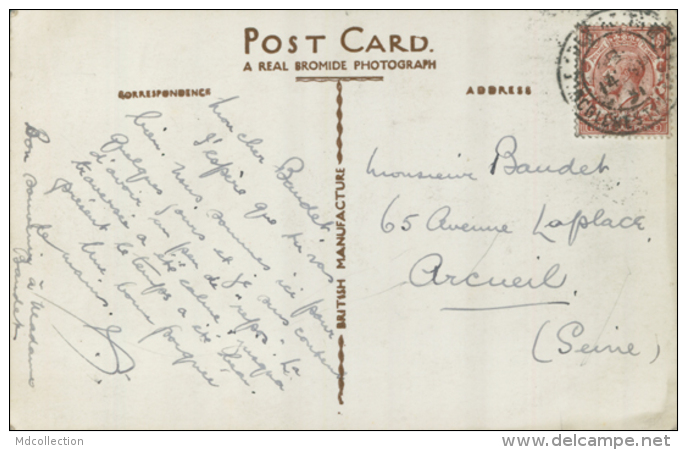 POST CARD.
A REAL BROMIDE PHOTOGRAPH
CORRESPONDENCE
ADDRESS
BRITISH MANUFACTURE
Mon cher Baudet
J'espère que tu vas
bien. Nous sommes ici pour
quelques jours et je suis content
d'avoir un peu de "repos". La
traversée a été calme, jusqu'à
présent le temps a été
Une bonne poignée
de mains.
Bon souvenir à Madame
Baudet
Monsieur Baudet
65 Avenue Laplace
Arcueil
(Seine)
Mdcollection
delcampe.net